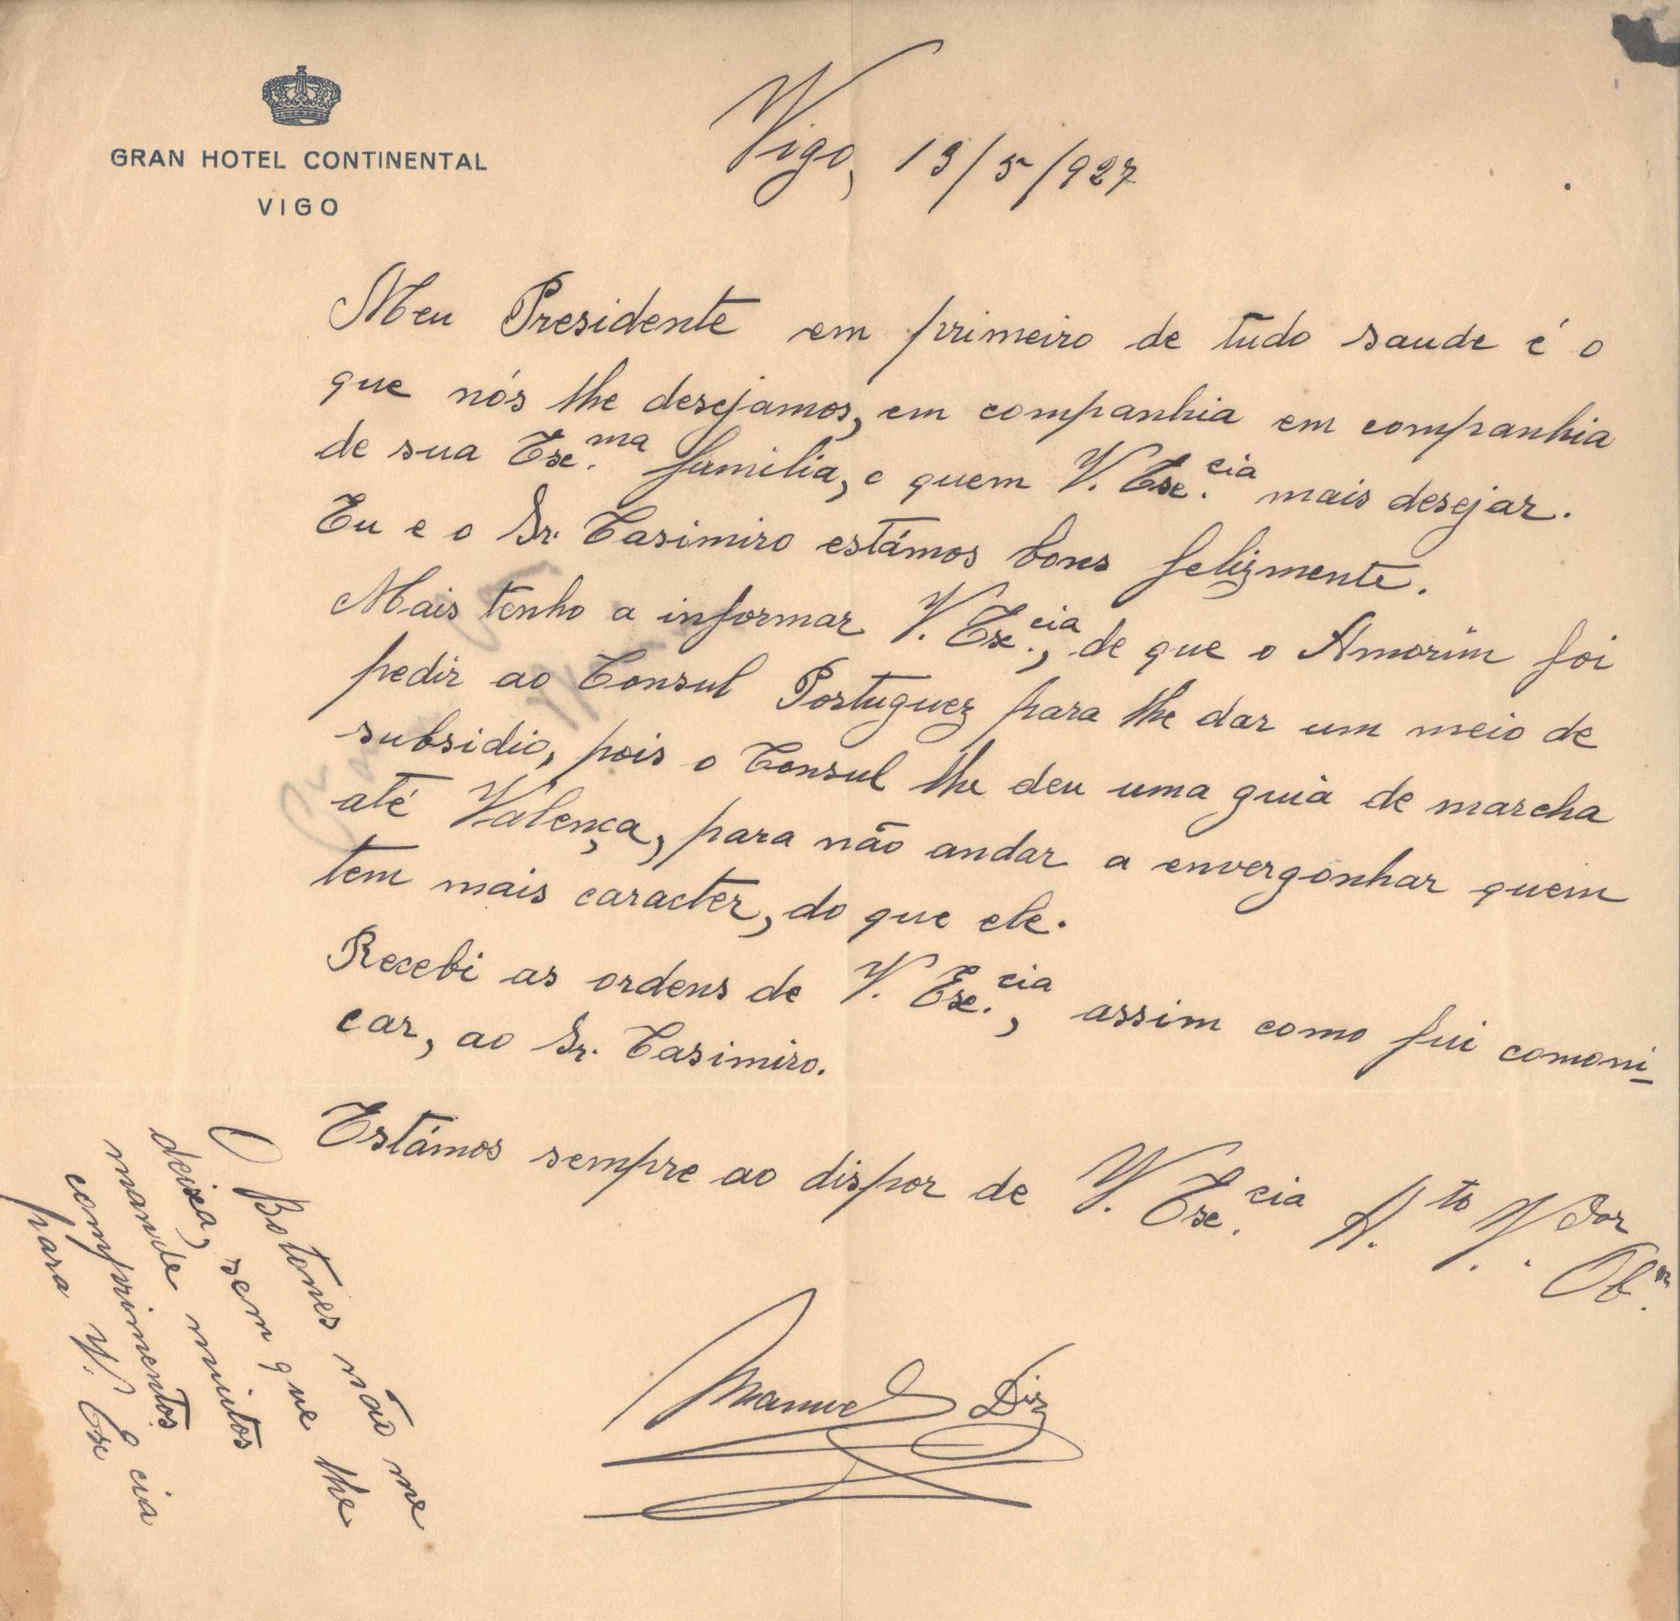 GRAN HOTEL CONTINENTAL
VIGO
Vigo, 13/5/927
Meu Presidente em primeiro de tudo saude é o
que nós lhe desejamos, em companhia em companhia
de sua Exc.ma familia, e quem V. Exc.cia mais desejar.
Eu e o Sr. Casimiro estámos bons felizmente.
Mais tenho a informar V. Exc.cia, de que o Amorim foi
pedir ao Consul Portuguez para lhe dar um meio de
subsidio, pois o Consul lhe deu uma guia de marcha
até Valença, para não andar a envergonhar quem
tem mais caracter, do que ele.
Recebi as ordens de V. Exc.cia, assim como fui comoni-
car, ao Sr. Casimiro.
Estámos sempre ao dispor de V. Exc.cia A.to V.dor
Ob.
Manuel Diz
O Botones não me
deixa, sem que lhe
mande muitos
comprimentos
para V. Exc.cia